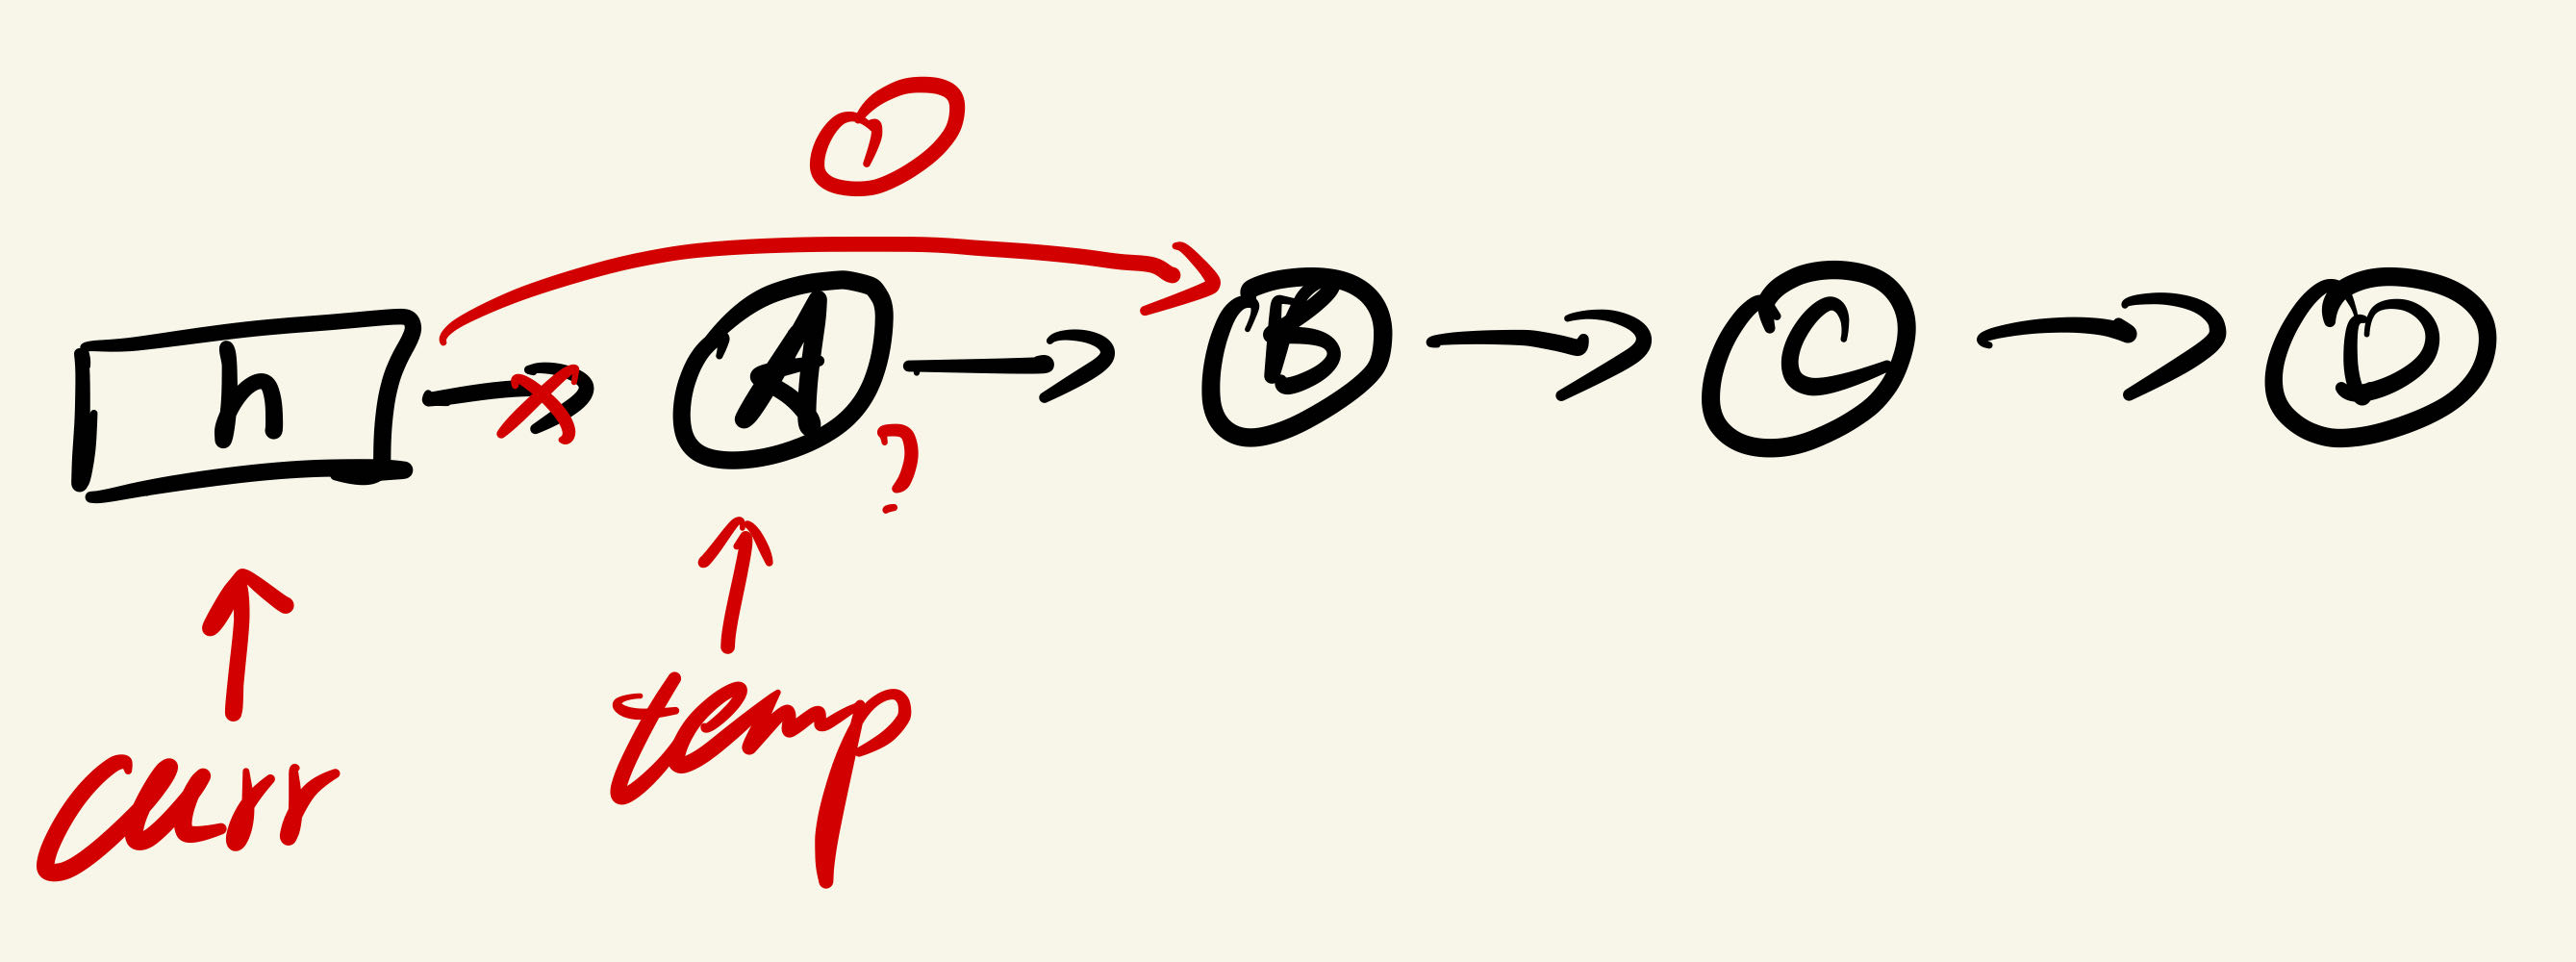 1
h → A → B → C → D
?
curr
temp